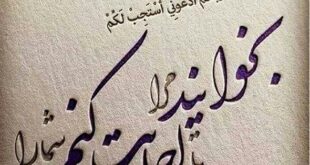 ادْعُونِي أَسْتَجِبْ لَكُمْ
بخوانید مرا
تا اجابت کنم شمارا